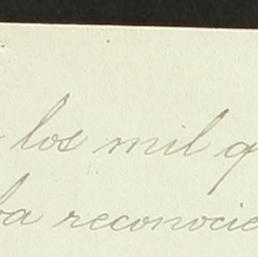 los mil q
ba reconocie